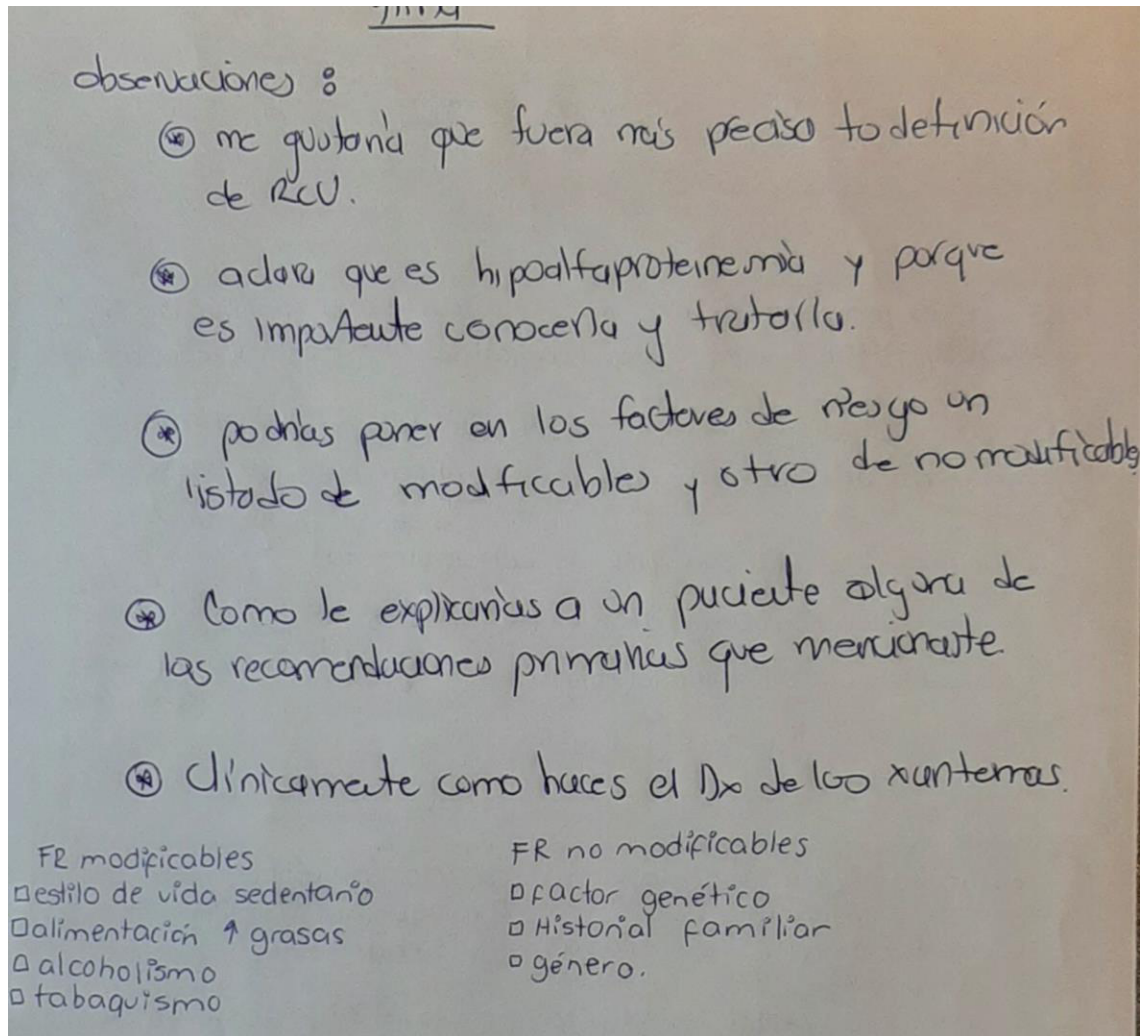 observaciones :
me gustaría que fuera más preciso tu definición
de RCV.
aclara que es hipoalfaproteinemia y porque
es importante conocerla y tratarla.
podrías poner en los factores de riesgo un
listado de modificables y otro de no modificables
Como le explicarías a un paciente alguna de
las recomendaciones primarias que mencionaste.
Clínicamente como haces el Dx de los xantemas.
FR modificables
estilo de vida sedentario
alimentación ↑ grasas
alcoholismo
tabaquismo
FR no modificables
factor genético
Historial familiar
género.